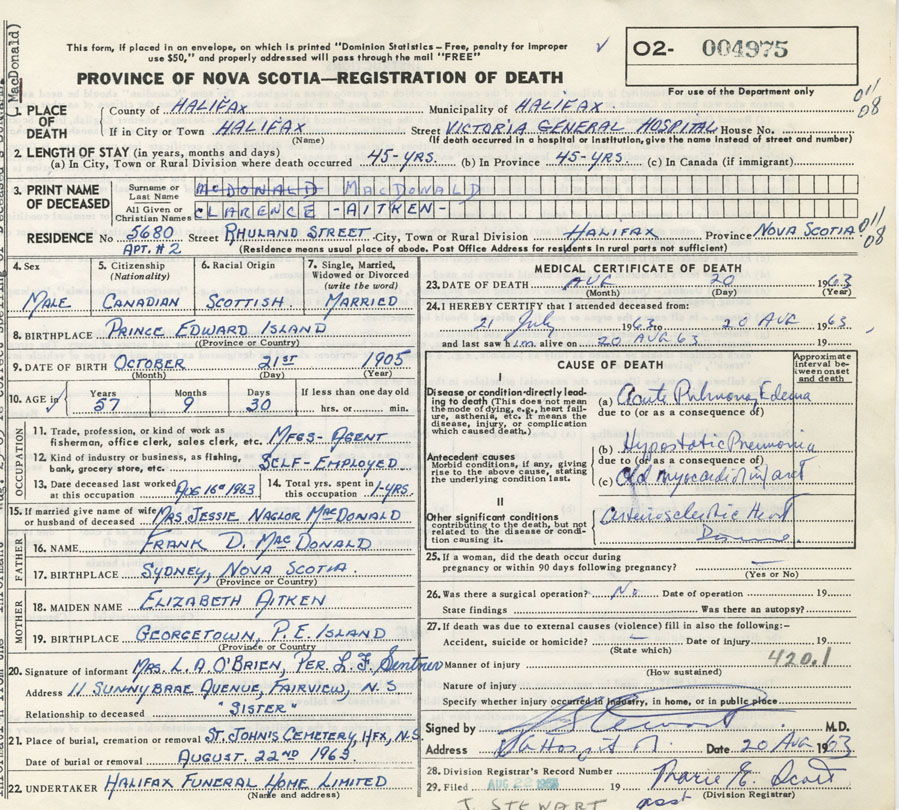 MacDonald)
This form, if placed in an envelope, on which is printed "Dominion Statistics – Free, penalty for improper
use $50," and properly addressed will pass through the mail "FREE"
PROVINCE OF NOVA SCOTIA—REGISTRATION OF DEATH
O2- 004975
For use of the Department only
1. PLACE OF DEATH
County of HALIFAX Municipality of HALIFAX
If in City or Town HALIFAX Street VICTORIA GENERAL HOSPITAL House No.
(Name) (If death occurred in a hospital or institution, give name instead of street and number)
011
08
2. LENGTH OF STAY (in years, months and days)
(a) In City, Town or Rural Division where death occurred 45-YRS. (b) In Province 45-YRS. (c) In Canada (if immigrant)
3. PRINT NAME OF DECEASED
Surname or Last Name McDONALD MACDONALD
All Given or Christian Names CLARENCE -AITKEN-
RESIDENCE No 5680 Street RHULAND STREET City, Town or Rural Division HALIFAX Province NOVA SCOTIA
APT. #2 (Residence means usual place of abode. Post Office Address for residents in rural parts not sufficient)
011
08
4. Sex MALE
5. Citizenship (Nationality) CANADIAN
6. Racial Origin SCOTTISH.
7. Single, Married, Widowed or Divorced (write the word) MARRIED
8. BIRTHPLACE PRINCE EDWARD ISLAND
(Province or Country)
9. DATE OF BIRTH OCTOBER 21ST 1905
(Month) (Day) (Year)
10. AGE in Years 57 Months 9 Days 30 If less than one day old hrs. or min.
OCCUPATION
11. Trade, profession, or kind of work as
fisherman, office clerk, sales clerk, etc. MFGS-AGENT
12. Kind of industry or business, as fishing,
bank, grocery store, etc. SELF-EMPLOYED
13. Date deceased last worked at this occupation AUG 16th 1963 14. Total yrs. spent in this occupation 1-YRS.
15. If married give name of wife or husband of deceased MRS. JESSIE NAGLOR MACDONALD
FATHER
16. NAME FRANK D. MACDONALD
17. BIRTHPLACE SYDNEY, NOVA SCOTIA.
(Province or Country)
MOTHER
18. MAIDEN NAME ELIZABETH AITKEN
19. BIRTHPLACE GEORGETOWN, P.E. ISLAND
(Province or Country
20. Signature of informant MRS. L. A. O'BRIEN, PER. L. F.
Address 11 SUNNYBRAE AVENUE, FAIRVIEW, N.S
Relationship to deceased "SISTER"
21. Place of burial, cremation or removal ST. JOHN'S CEMETERY, HFX, N.S.
Date of burial or removal AUGUST. 22ND 1963
22. UNDERTAKER HALIFAX FUNERAL HOME LIMITED
(Name and address)
MEDICAL CERTIFICATE OF DEATH
23. DATE OF DEATH AUG 20 1963
(Month) (Day) (Year)
24. I HEREBY CERTIFY that I attended deceased from:
21 July 1963 to 20 AUG 1963
and last saw him alive on 20 AUG 63 19
CAUSE OF DEATH
Approximate interval between onset and death
I
Disease or condition directly leading to death (This does not mean the mode of dying, e.g., heart failure, asthenia, etc. It means the disease, injury, or complication which caused death.)
(a) Acute Pulmonary Edema
due to (or as a consequence of)
Antecedent causes
Morbid conditions, if any, giving rise to the above cause, stating the underlying condition last.
(b) Hypostatic Pneumonia
due to (or as a consequence of)
(c) Old myocardial infarct
II
Other significant conditions
contributing to the death, but not related to the disease or condition causing it.
Arteriosclerotic Heart
Disease.
25. If a woman, did the death occur during
pregnancy or within 90 days following pregnancy? —
(Yes or No)
26. Was there a surgical operation? No Date of operation 19
State findings Was there an autopsy?
27. If death was due to external causes (violence) fill in also the following:-
Accident, suicide or homicide? — Date of injury 19
(State which)
Manner of injury 420.1
(How sustained)
Nature of injury
Specify whether injury occurred in industry, in home, or in public place
Signed by J Stewart M.D.
Address Date 20 AUG 1963
28. Division Registrar's Record Number
29. Filed AUG 22 19 Marie E. Scott
asst (Division Registrar)
J. STEWART